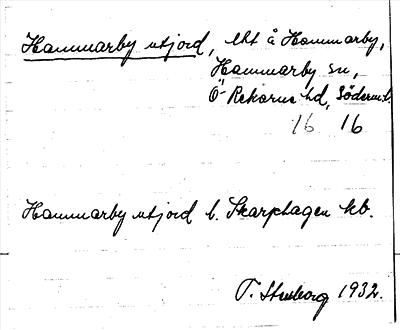 Hammarby utjord, lht å Hammarby,
Hammarby sn,
Ö-Rekarne hd, Söderm.l.
16 16
Hammarby utjord b. Skarphagen kb.
T. 1932.